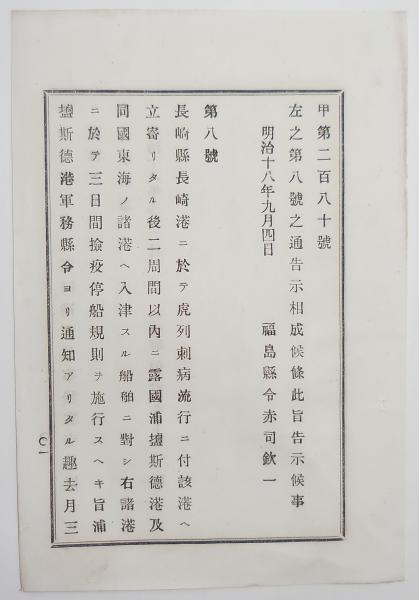 甲第二百八十號
左之第八號之通告示相成候條此旨告示候事
明治十八年九月四日
福島縣令赤司欽一
第八號
長崎縣長崎港ニ於テ虎列刺病流行ニ付該港ヘ
立寄リタル後二周間以內ニ露國浦鹽斯德港及
同國東海ノ諸港ヘ入津スル船舶ニ對シ右諸港
ニ於テ三日間撿疫停船規則ヲ施行スヘキ旨浦
鹽斯德港軍務縣令ヨリ通知アリタル趣去月三